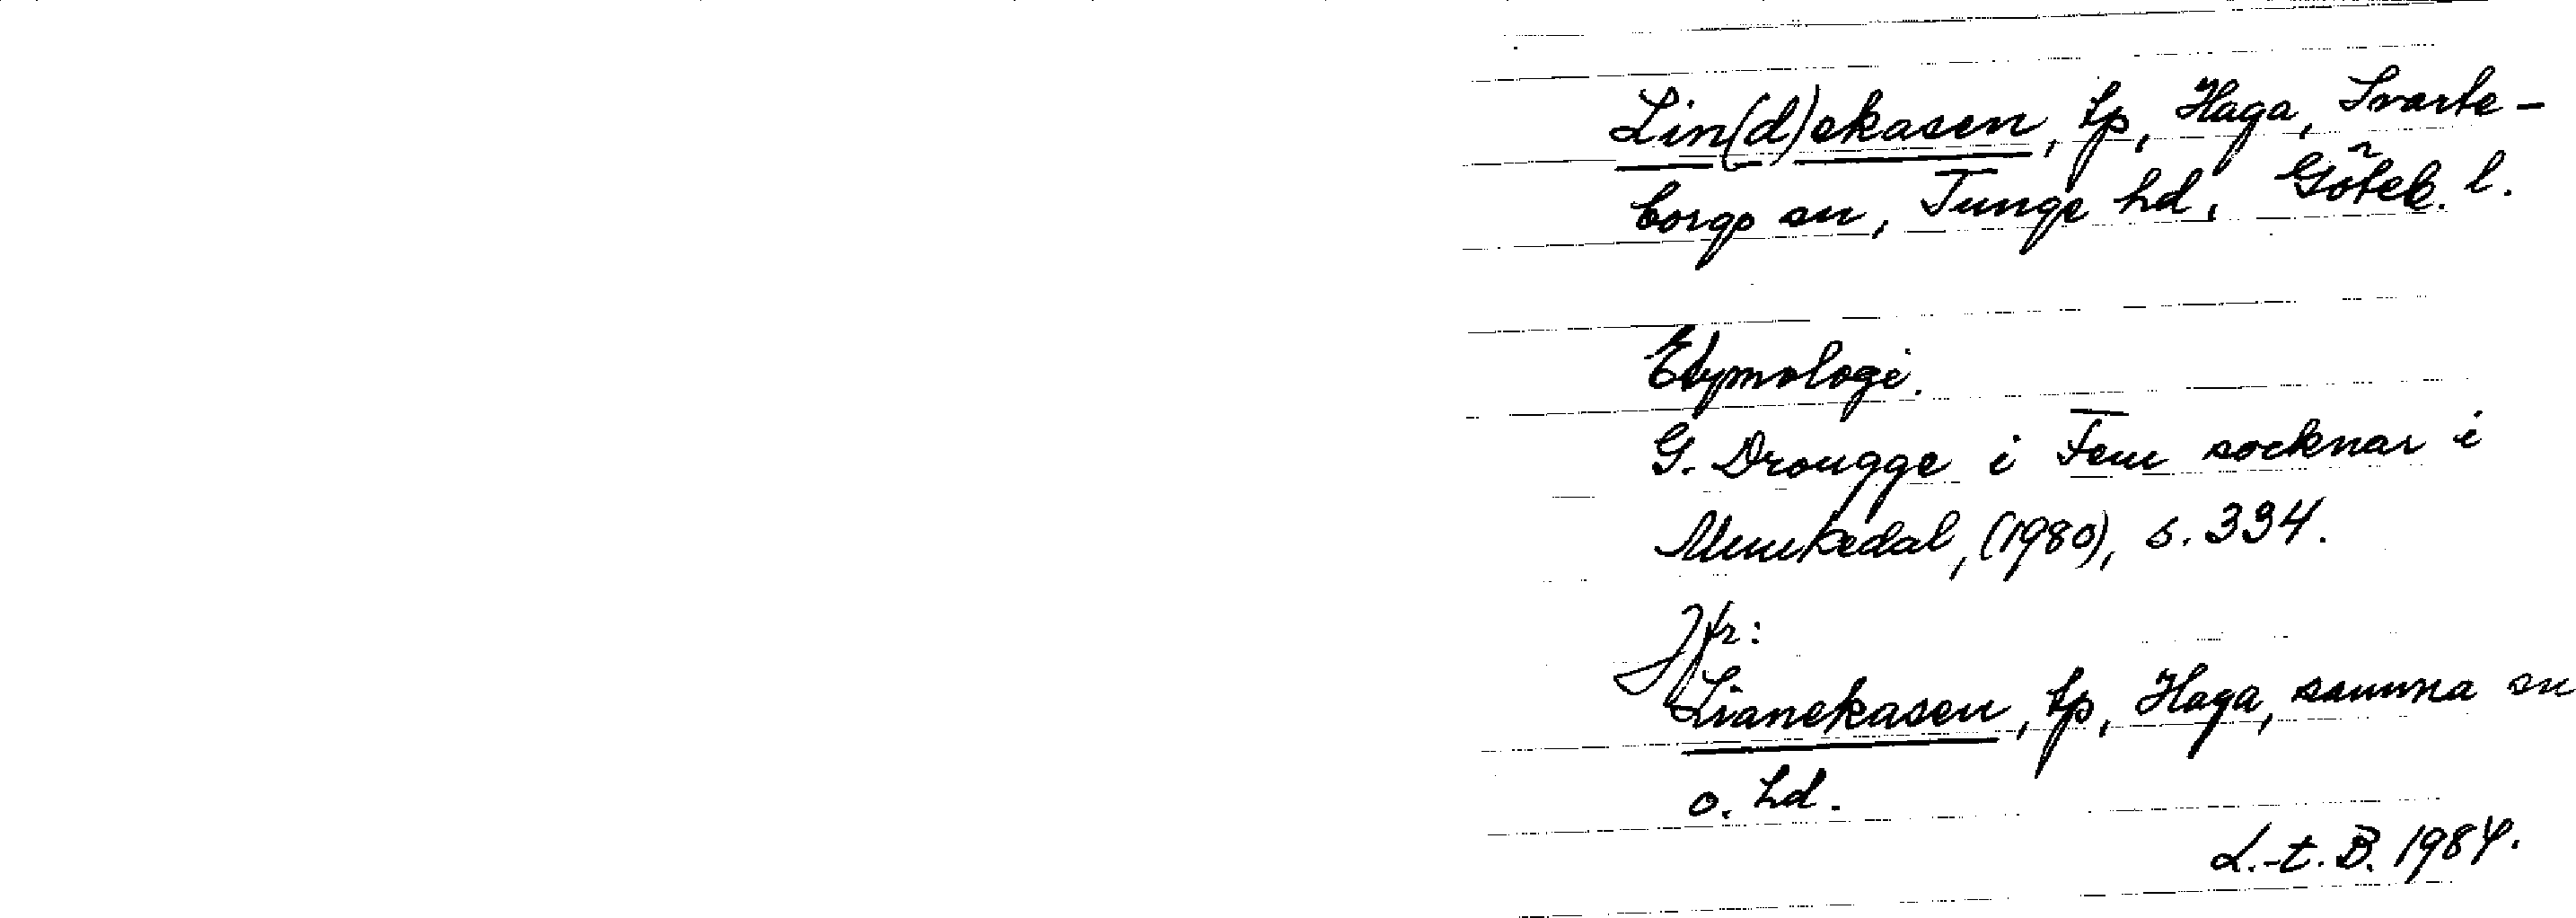 Lin(d)ekasen, tp, Haga, Svarte-
borgs sn, Tunge hd, Göteb. l.
Etymologi.
G. Drougge i Fem socknar i
Munkedal, (1980), s. 334.
Jfr:
Lianekasen, tp, Haga, samma sn
o. hd.
L.-t. B. 1984.